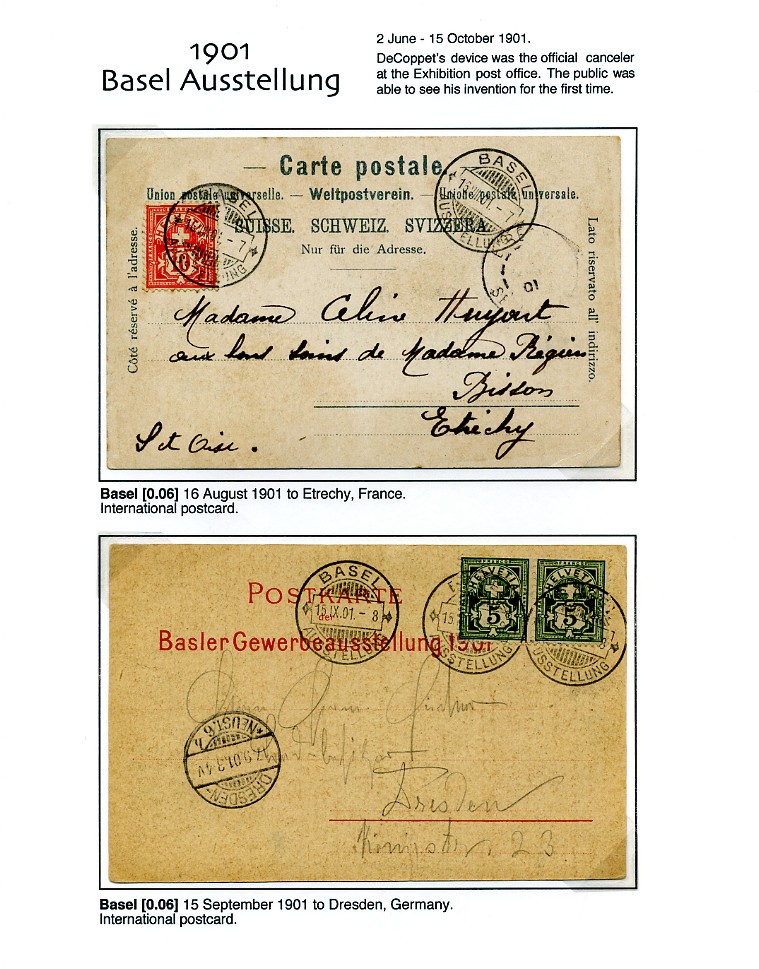 1901
Basel Ausstellung
2 June - 15 October 1901.
DeCoppet's device was the official canceler
at the Exhibition post office. The public was
able to see his invention for the first time.
Carte postale.
Union postale universelle. — Weltpostverein. — Unione postale universale.
SUISSE. SCHWEIZ. SVIZZERA.
Nur für die Adresse.
Côté réservé à l'adresse.
Lato riservato all' indirizzo.
BASEL
16 VIII 01. - 7
AUSSTELLUNG
01
Madame Celine
aux bons soins de Madame
Bisson
Etréchy
S et Oise.
Basel [0.06] 16 August 1901 to Etrechy, France.
International postcard.
POSTKARTE
der
Basler Gewerbeausstellung 1901
BASEL
15.IX.01.- 8
AUSSTELLUNG
FRANCO
HELVETIA
5
FRANCO
HELVETIA
5
AUSSTELLUNG
AUSSTELLUNG
*NEUST.6.
17.9.01.3-4V
DRESDEN-
Dresden
23
Basel [0.06] 15 September 1901 to Dresden, Germany.
International postcard.